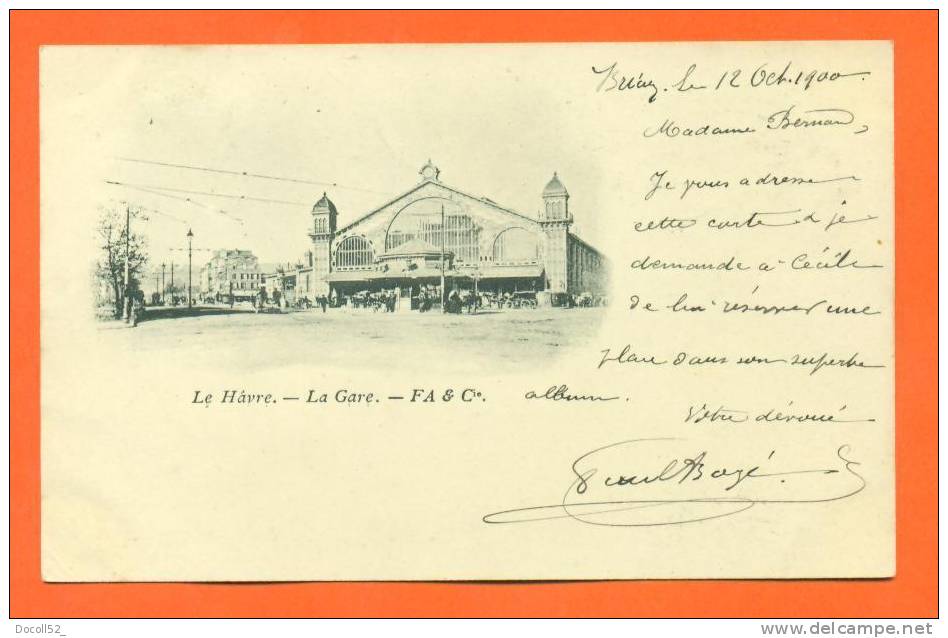 le 12 Oct. 1900
Madame Bernard,
Je vous adresse
cette carte & je
demande à Cécile
de lui réserver une
place dans son superbe
album.
Votre dévoué
Le Hâvre. — La Gare. — FA & Cie.
Docoll52_
www.delcampe.net